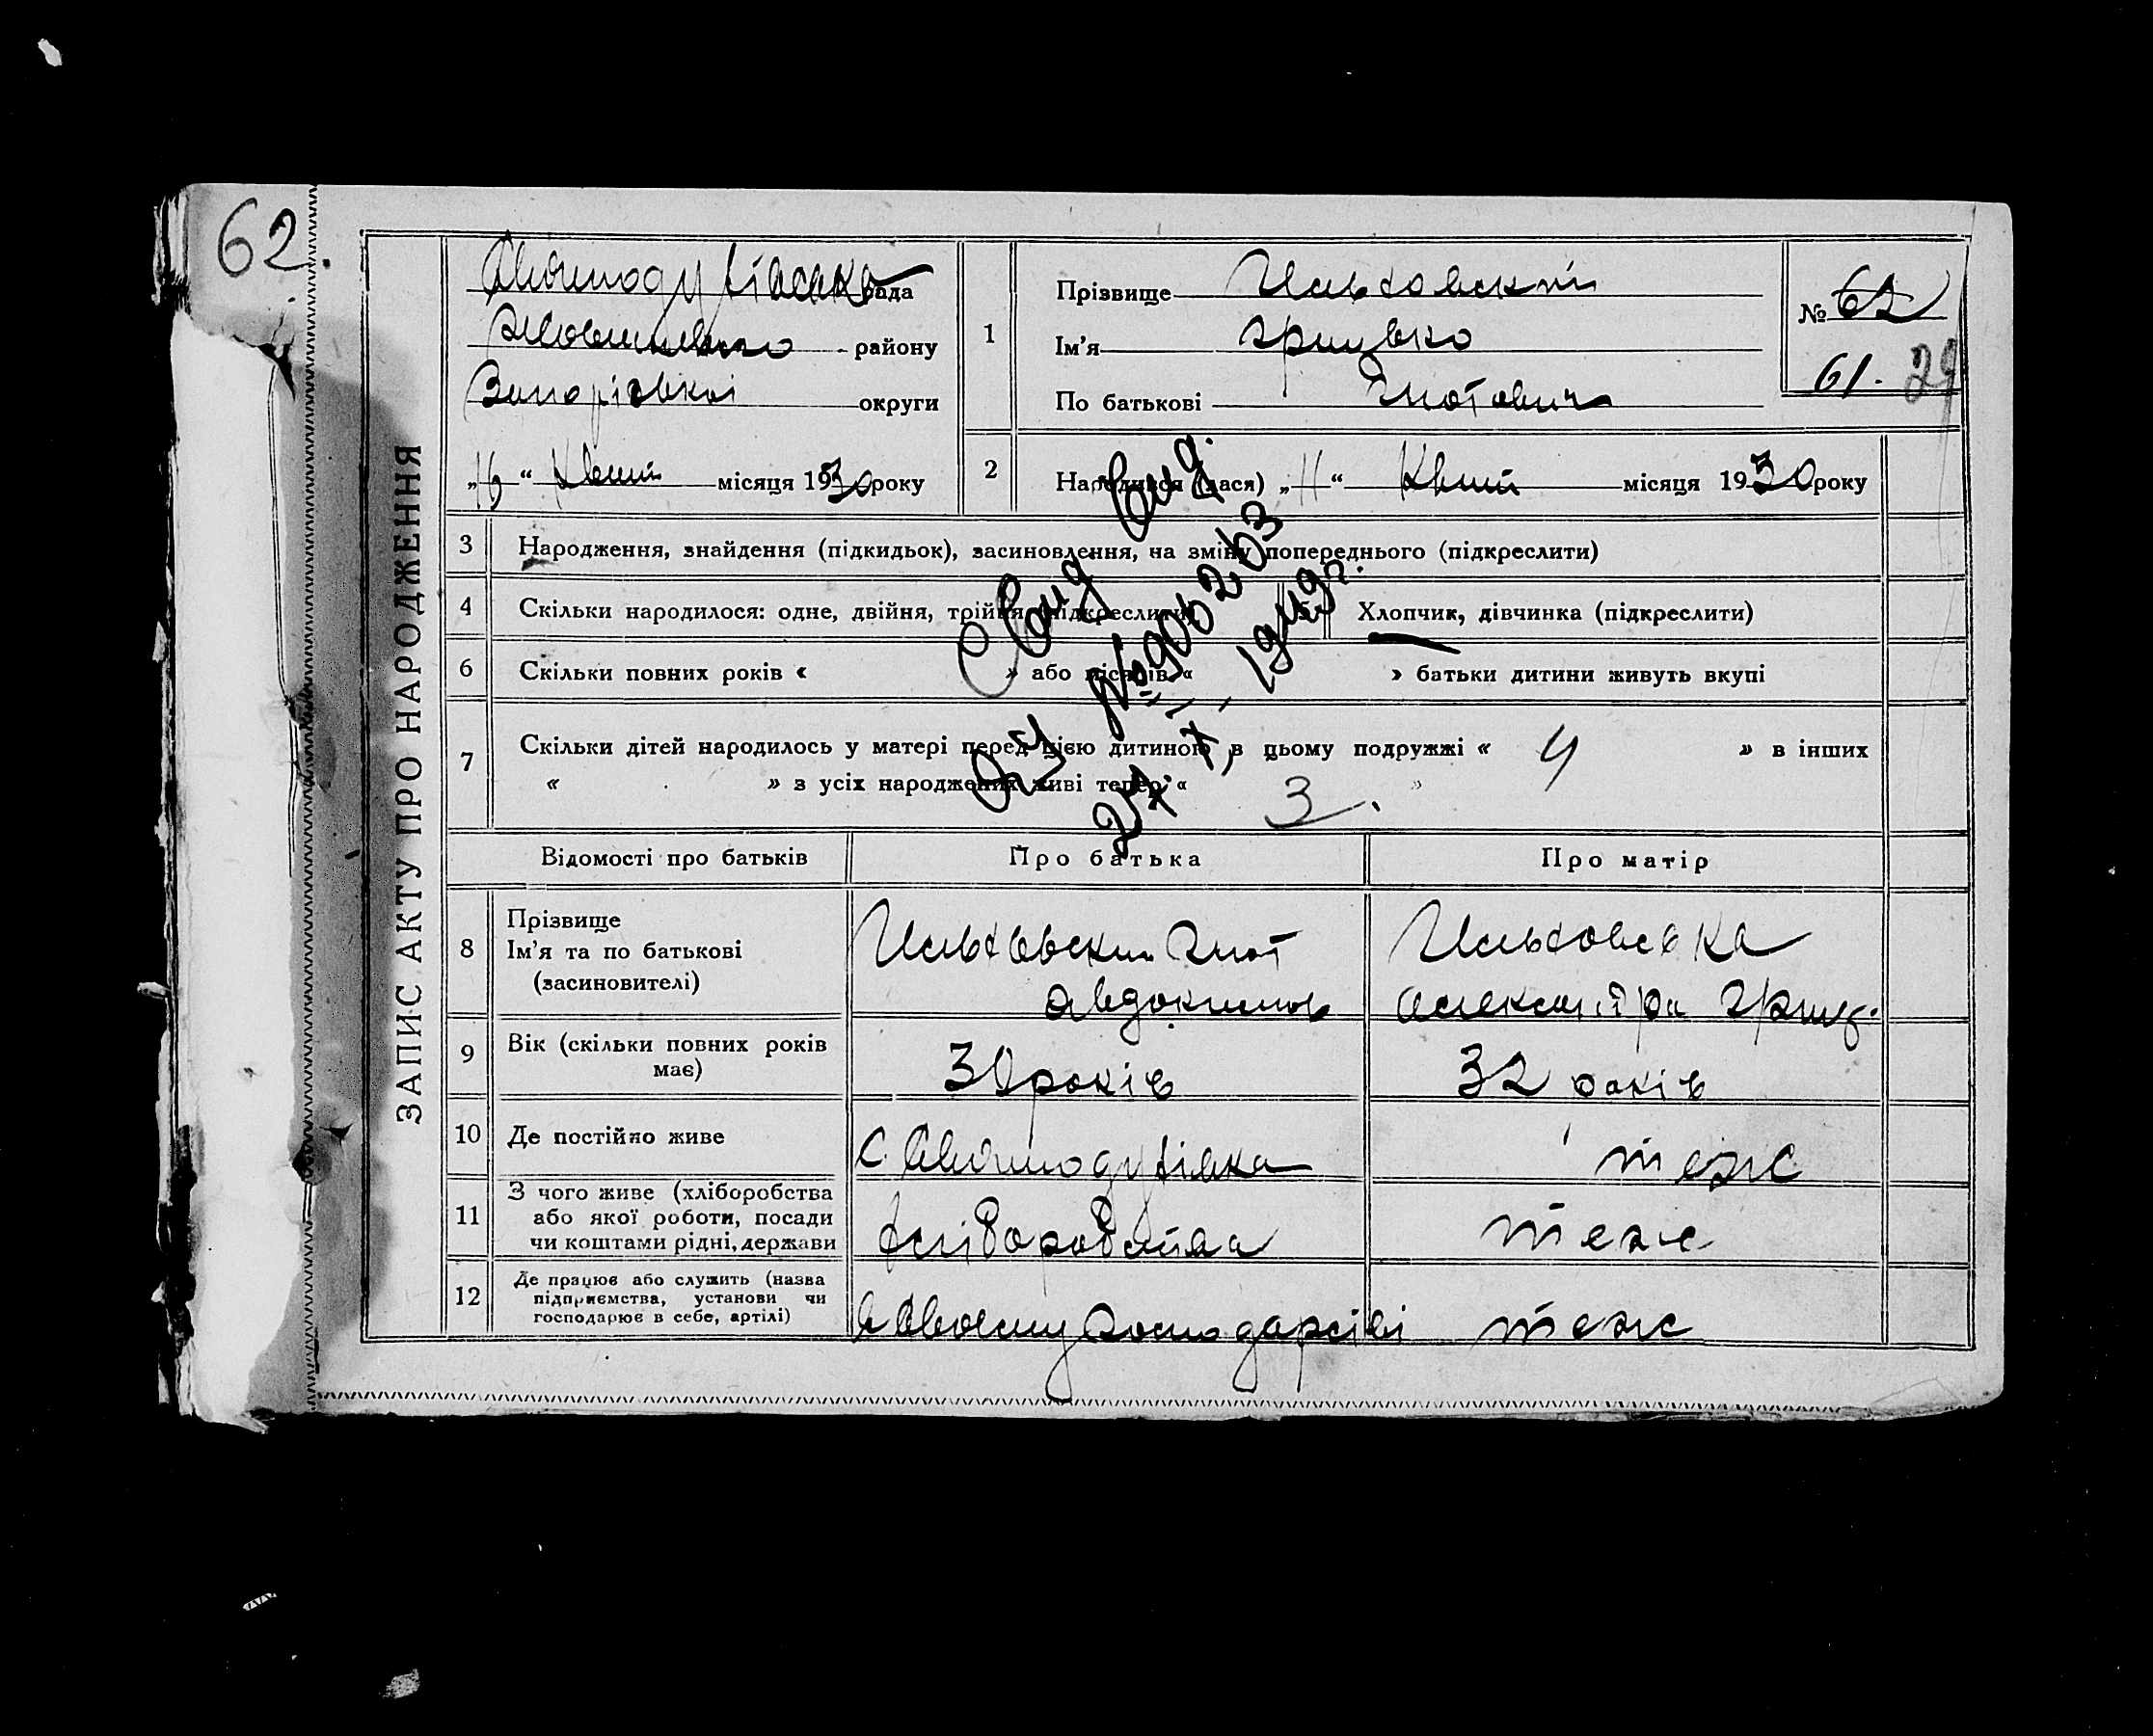 62.
ЗАПИС АКТУ ПРО НАРОДЖЕННЯ
рада
району
округи
„16“ Квіт місяця 1930 року
1
Прізвище
Ім'я Грицько
По батькові Гнатович
№ 62
61. 29
2
Народився (лася) „11“ Квіт місяця 1930 року
3 Народження, знайдення (підкидьок), засиновлення, на зміну попереднього (підкреслити)
4 Скільки народилося: одне, двійня, трійня (підкреслити)
5 Хлопчик, дівчинка (підкреслити)
6 Скільки повних років « » або місяців « » батьки дитини живуть вкупі
7 Скільки дітей народилось у матері перед цією дитиною в цьому подружжі « 4 » в інших
« » з усіх народжених живі тепер « 3. »
№ 906263
1949г.
Відомості про батьків
Про батька
Про матір
8
Прізвище
Ім'я та по батькові
(засиновителі)
Гнат
Олександра Гриц.
9
Вік (скільки повних років
має)
30 років
32 років
10 Де постійно живе
с.
теж
11
З чого живе (хліборобства
або якої роботи, посади
чи коштами рідні, держави
хліборобства
теж
12
Де працює або служить (назва
підприємства, установи чи
господарює в себе, артілі)
в своєму господарсіві
теж